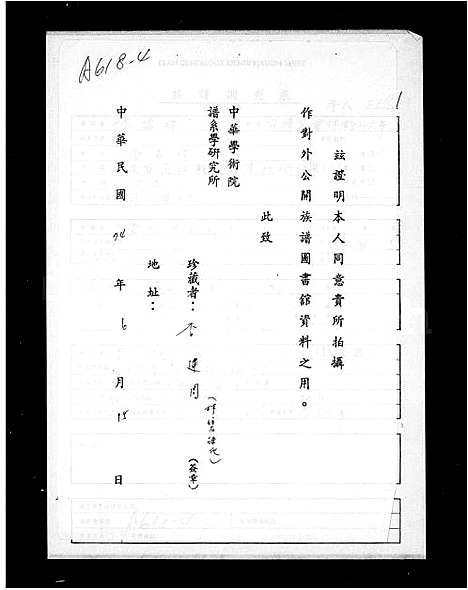 A618-4
1
茲證明本人同意貴所拍攝
作對外公開族譜圖書館資料之用。
此致
中華學術院
譜系學研究所
珍藏者：
建同
(簽章)
地址：
中華民國 74 年 6 月 15 日